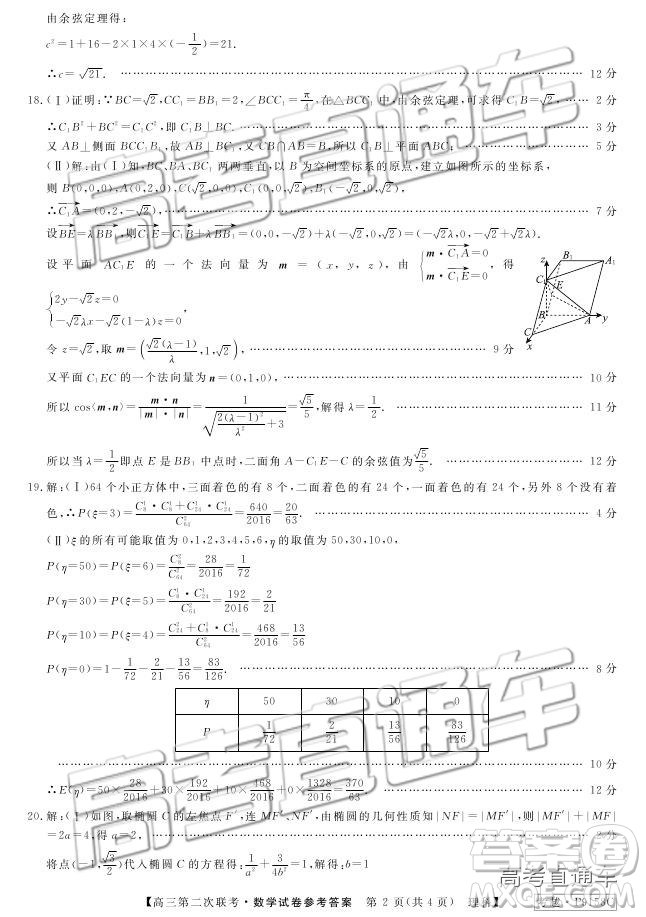 由余弦定理得:
c²=1+16-2×1×4×(-1/2)=21.
∴c=√21. …… 12 分
18.(Ⅰ)证明:∵BC=√2,CC₁=BB₁=2,∠BCC₁=π/4,在△BCC₁中,由余弦定理,可求得C₁B=√2, …… 2 分
∴C₁B²+BC²=C₁C²,即C₁B⊥BC. …… 3 分
又AB⊥侧面BCC₁B₁,故AB⊥BC₁,又CB∩AB=B,所以C₁B⊥平面ABC; …… 5 分
(Ⅱ)解:由(Ⅰ)知,BC、BA、BC₁两两垂直,以B为空间坐标系的原点,建立如图所示的坐标系,
则B(0,0,0),A(0,2,0),C(√2,0,0),C₁(0,0,√2),B₁(-√2,0,√2),
∴C₁A=(0,2,-√2), …… 7 分
设BE=λBB₁,则C₁E=C₁B+λBB₁=(0,0,-√2)+λ(-√2,0,√2)=(-√2λ,0,-√2+√2λ).
设平面AC₁E的一个法向量为m=(x,y,z),由{m·C₁A=0 m·C₁E=0,得
{2y-√2z=0 -√2λx-√2(1-λ)z=0,
令z=√2,取m=(√2(λ-1)/λ,1,√2), …… 9 分
又平面C₁EC的一个法向量为n=(0,1,0), …… 10 分
所以cos⟨m,n⟩=m·n/|m|·|n|=1/√(2(λ-1)²/λ²+3)=√5/5,解得λ=1/2. …… 11 分
所以当λ=1/2即点E是BB₁中点时,二面角A-C₁E-C的余弦值为√5/5. …… 12 分
z B₁ A₁ C₁ E B A y C x
19.解:(Ⅰ)64个小正方体中,三面着色的有8个,二面着色的有24个,一面着色的有24个,另外8个没有着
色,∴P(ξ=3)=(C₈¹·C₈¹+C₂₄¹·C₂₄¹)/C₆₄²=640/2016=20/63. …… 4 分
(Ⅱ)ξ的所有可能取值为0,1,2,3,4,5,6,η的取值为50,30,10,0,
P(η=50)=P(ξ=6)=C₈²/C₆₄²=28/2016=1/72
P(η=30)=P(ξ=5)=C₈¹·C₂₄¹/C₆₄²=192/2016=2/21
P(η=10)=P(ξ=4)=(C₂₄²+C₈¹·C₂₄¹)/C₆₄²=468/2016=13/56
P(η=0)=1-1/72-2/21-13/56=83/126. …… 8 分
η 50 30 10 0
P 1/72 2/21 13/56 83/126
…… 10 分
∴E(η)=50×28/2016+30×192/2016+10×468/2016+0×1328/2016=370/63. …… 12 分
20.解:(Ⅰ)如图,取椭圆C的左焦点F′,连MF′、NF′,由椭圆的几何性质知|NF|=|MF′|,则|MF′|+|MF|
=2a=4,得a=2, …… 2 分
将点(-1,√3/2)代入椭圆C的方程得:1/a²+3/4b²=1,解得:b=1
【高三第二次联考·数学试卷参考答案 第 2 页(共 4 页) 理科】
高考直通车
高考直通车